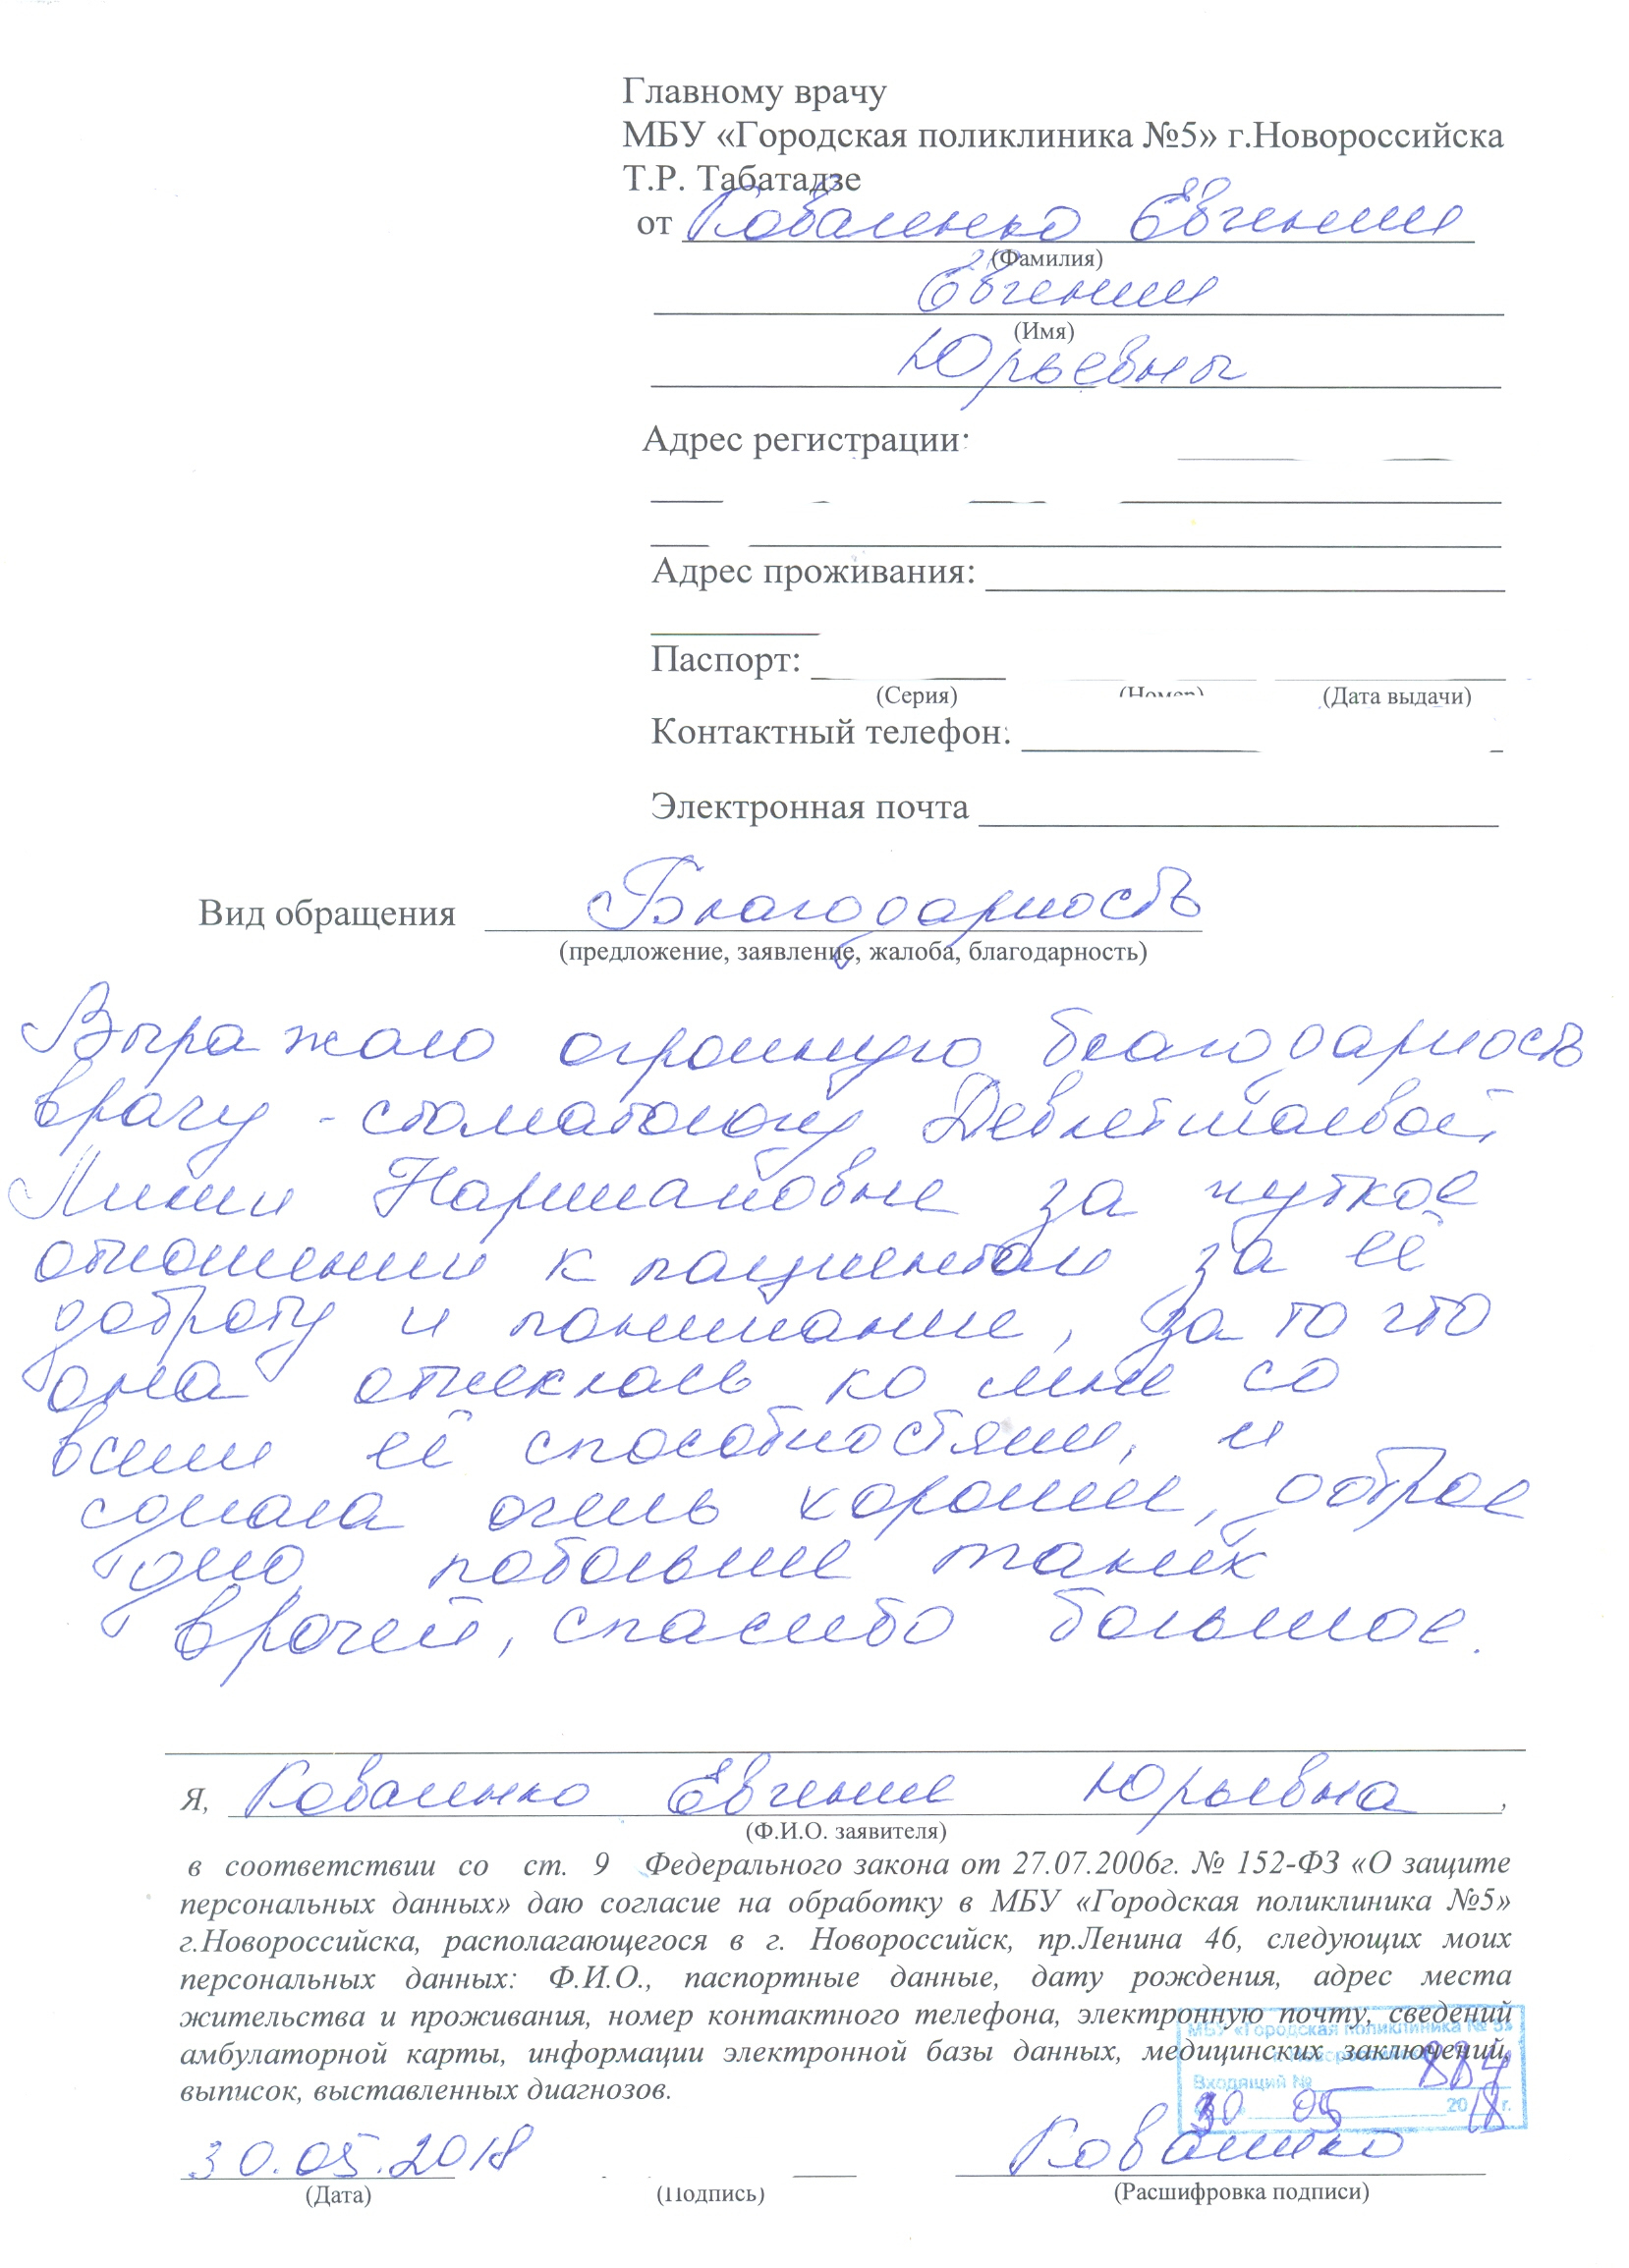 Главному врачу
МБУ «Городская поликлиника №5» г.Новороссийска
Т.Р. Табатадзе
от Коваленко Евгении
(Фамилия)
Евгении
(Имя)
Юрьевны
Адрес регистрации:
Адрес проживания:
Паспорт:
(Серия) (Номер) (Дата выдачи)
Контактный телефон:
Электронная почта
Вид обращения Благодарность
(предложение, заявление, жалоба, благодарность)
Выражаю огромную благодарность
врачу - стоматологу Девлетшаевой
Лилии Наримановне за чуткое
отношении к пациентам за её
доброту и понимание, за то что
она отнеклась ко мне со
всеми её способностями, и
сделала очень хорошее, доброе
дело побольше таких
врачей, спасибо большое.
Я, Коваленко Евгение Юрьевна,
(Ф.И.О. заявителя)
в соответствии со ст. 9 Федерального закона от 27.07.2006г. № 152-ФЗ «О защите
персональных данных» даю согласие на обработку в МБУ «Городская поликлиника №5»
г.Новороссийска, располагающегося в г. Новороссийск, пр.Ленина 46, следующих моих
персональных данных: Ф.И.О., паспортные данные, дату рождения, адрес места
жительства и проживания, номер контактного телефона, электронную почту, сведений
амбулаторной карты, информации электронной базы данных, медицинских заключений,
выписок, выставленных диагнозов.
МБУ «Городская поликлиника № 5»
Входящий № 884
30 05 2018 г.
30.05.2018 Коваленко
(Дата) (Подпись) (Расшифровка подписи)